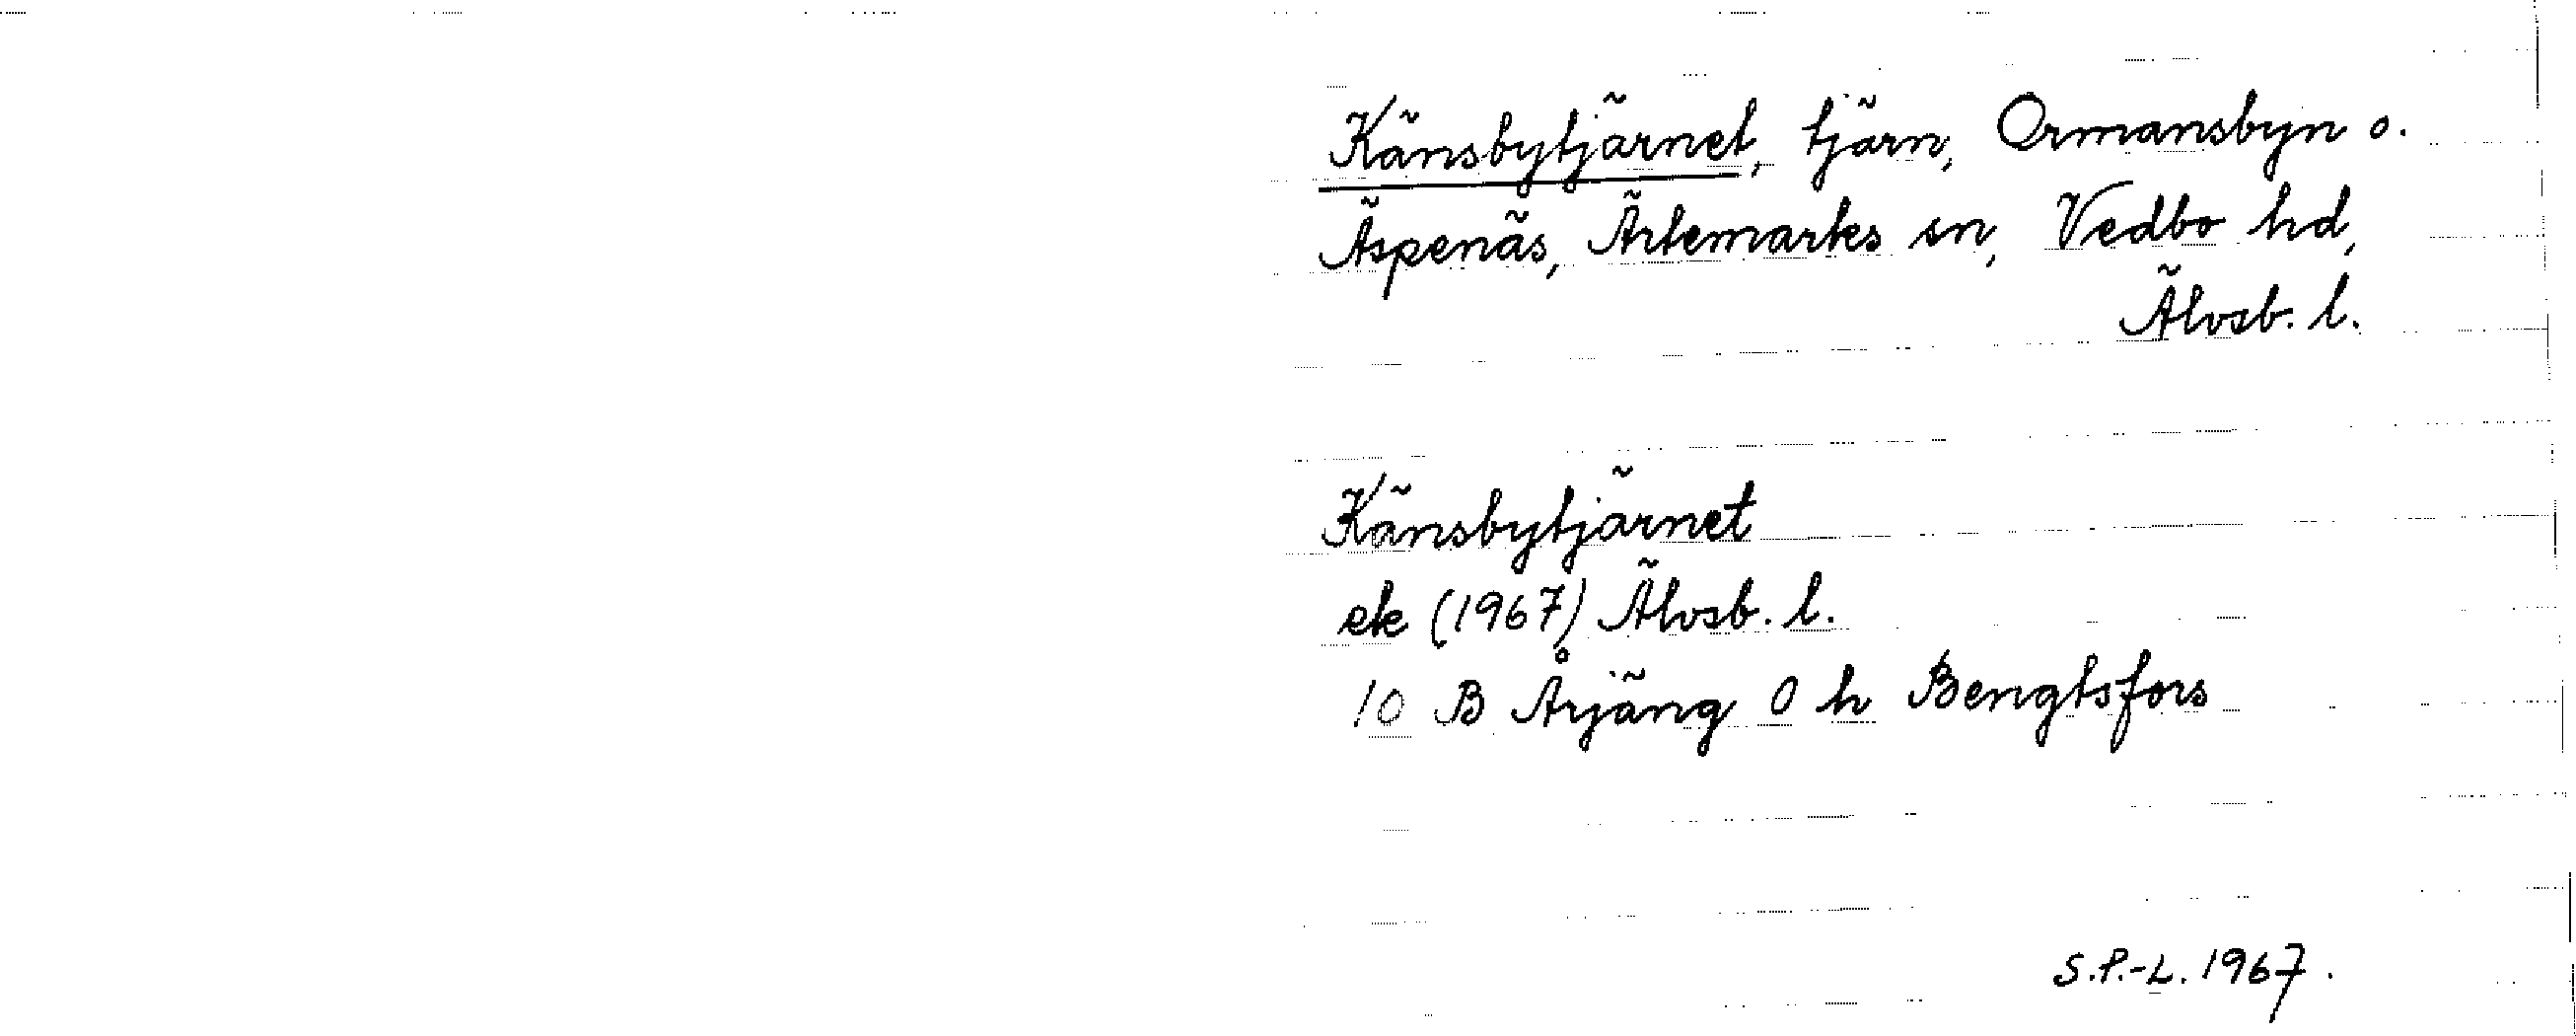 Känsbytjärnet, tjärn, Ormansbyn o.
Äspenäs, Ärtemarks sn, Vedbo hd,
Älvsb. l.
Känsbytjärnet
ek (1967) Älvsb. l.
10 B Årjäng 0 h Bengtsfors
S.P.-L. 1967.